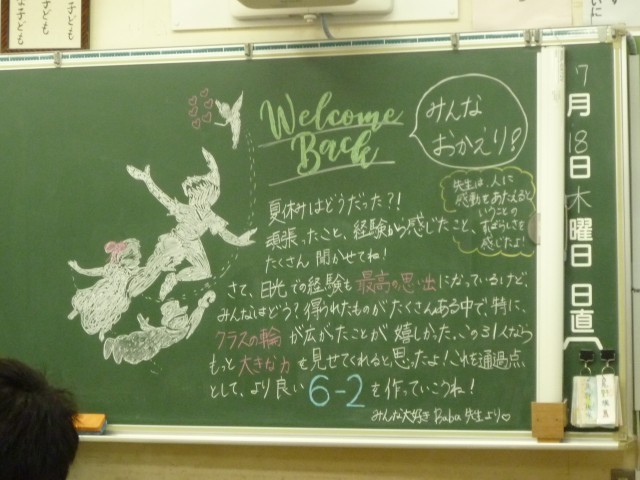 Welcome
Back
みんな
おかえり!
先生は、人に
感動をあたえると
いうことの
すばらしさを
感じたよ!
夏休みはどうだった?!
頑張ったこと、経験から感じたこと、
たくさん聞かせてね!
さて、日光での経験も最高の思い出になっているけど、
みんなはどう?得られたものがたくさんある中で、特に、
クラスの輪が広がたことが嬉しかった。この31人なら
もっと大きな力を見せてくれると思ったよ!これを通過点
として、より良い6-2を作っていこうね!
みんな大好きBaba先生より♡
7月18日木曜日
日直